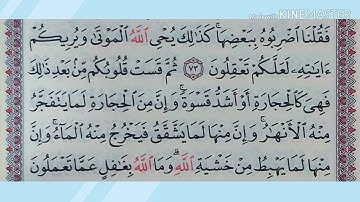 Made with KINEMASTER
فَقُلْنَا ٱضْرِبُوهُ بِبَعْضِهَا ۚ كَذَٰلِكَ يُحْىِ ٱللَّهُ ٱلْمَوْتَىٰ وَيُرِيكُمْ
ءَايَٰتِهِۦ لَعَلَّكُمْ تَعْقِلُونَ ٧٣ ثُمَّ قَسَتْ قُلُوبُكُم مِّنۢ بَعْدِ ذَٰلِكَ
فَهِىَ كَٱلْحِجَارَةِ أَوْ أَشَدُّ قَسْوَةً ۚ وَإِنَّ مِنَ ٱلْحِجَارَةِ لَمَا يَتَفَجَّرُ
مِنْهُ ٱلْأَنْهَٰرُ ۚ وَإِنَّ مِنْهَا لَمَا يَشَّقَّقُ فَيَخْرُجُ مِنْهُ ٱلْمَآءُ ۚ وَإِنَّ
مِنْهَا لَمَا يَهْبِطُ مِنْ خَشْيَةِ ٱللَّهِ ۗ وَمَا ٱللَّهُ بِغَٰفِلٍ عَمَّا تَعْمَلُونَ